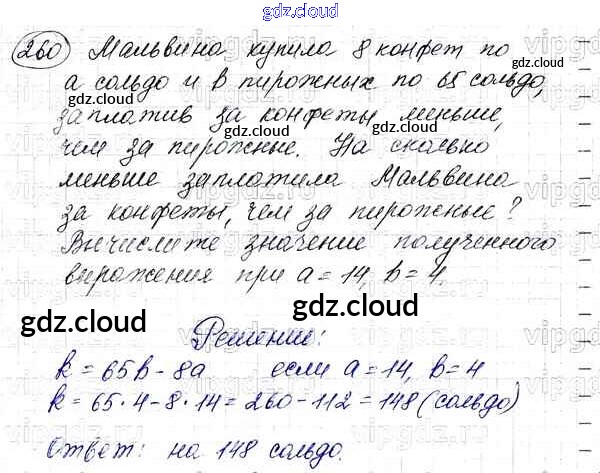 gdz.cloud
260 Мальвина купила 8 конфет по
a сольдо и b пирожных по 65 сольдо,
gdz.cloud gdz.cloud
заплатив за конфеты меньше,
gdz.cloud
чем за пирожные. На сколько
меньше заплатила Мальвина
за конфеты, чем за пирожные?
Вычислите значение полученного
выражения при a = 14, b = 4.
gdz.cloud gdz.cloud
Решение:
k = 65b - 8a если a = 14, b = 4
k = 65 · 4 - 8 · 14 = 260 - 112 = 148 (сольдо)
Ответ: на 148 сольдо.